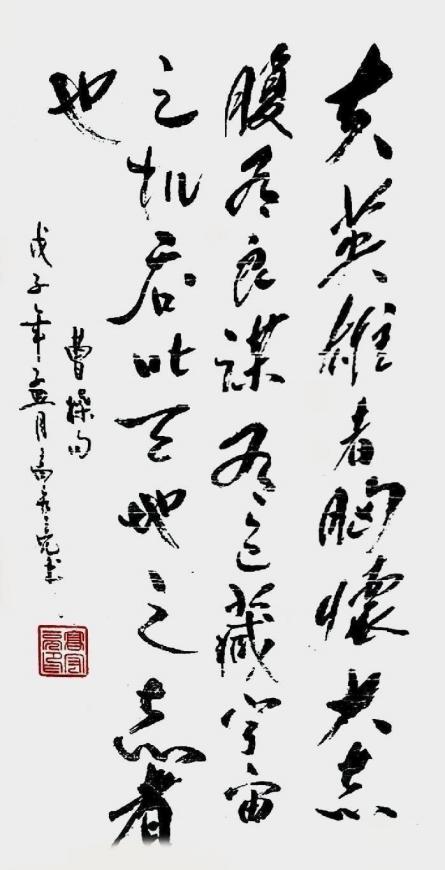 夫英雄者胸懷大志
腹有良谋有包藏宇宙
之机吞吐天地之志者
也
曹操句
戊子年孟月高亮书